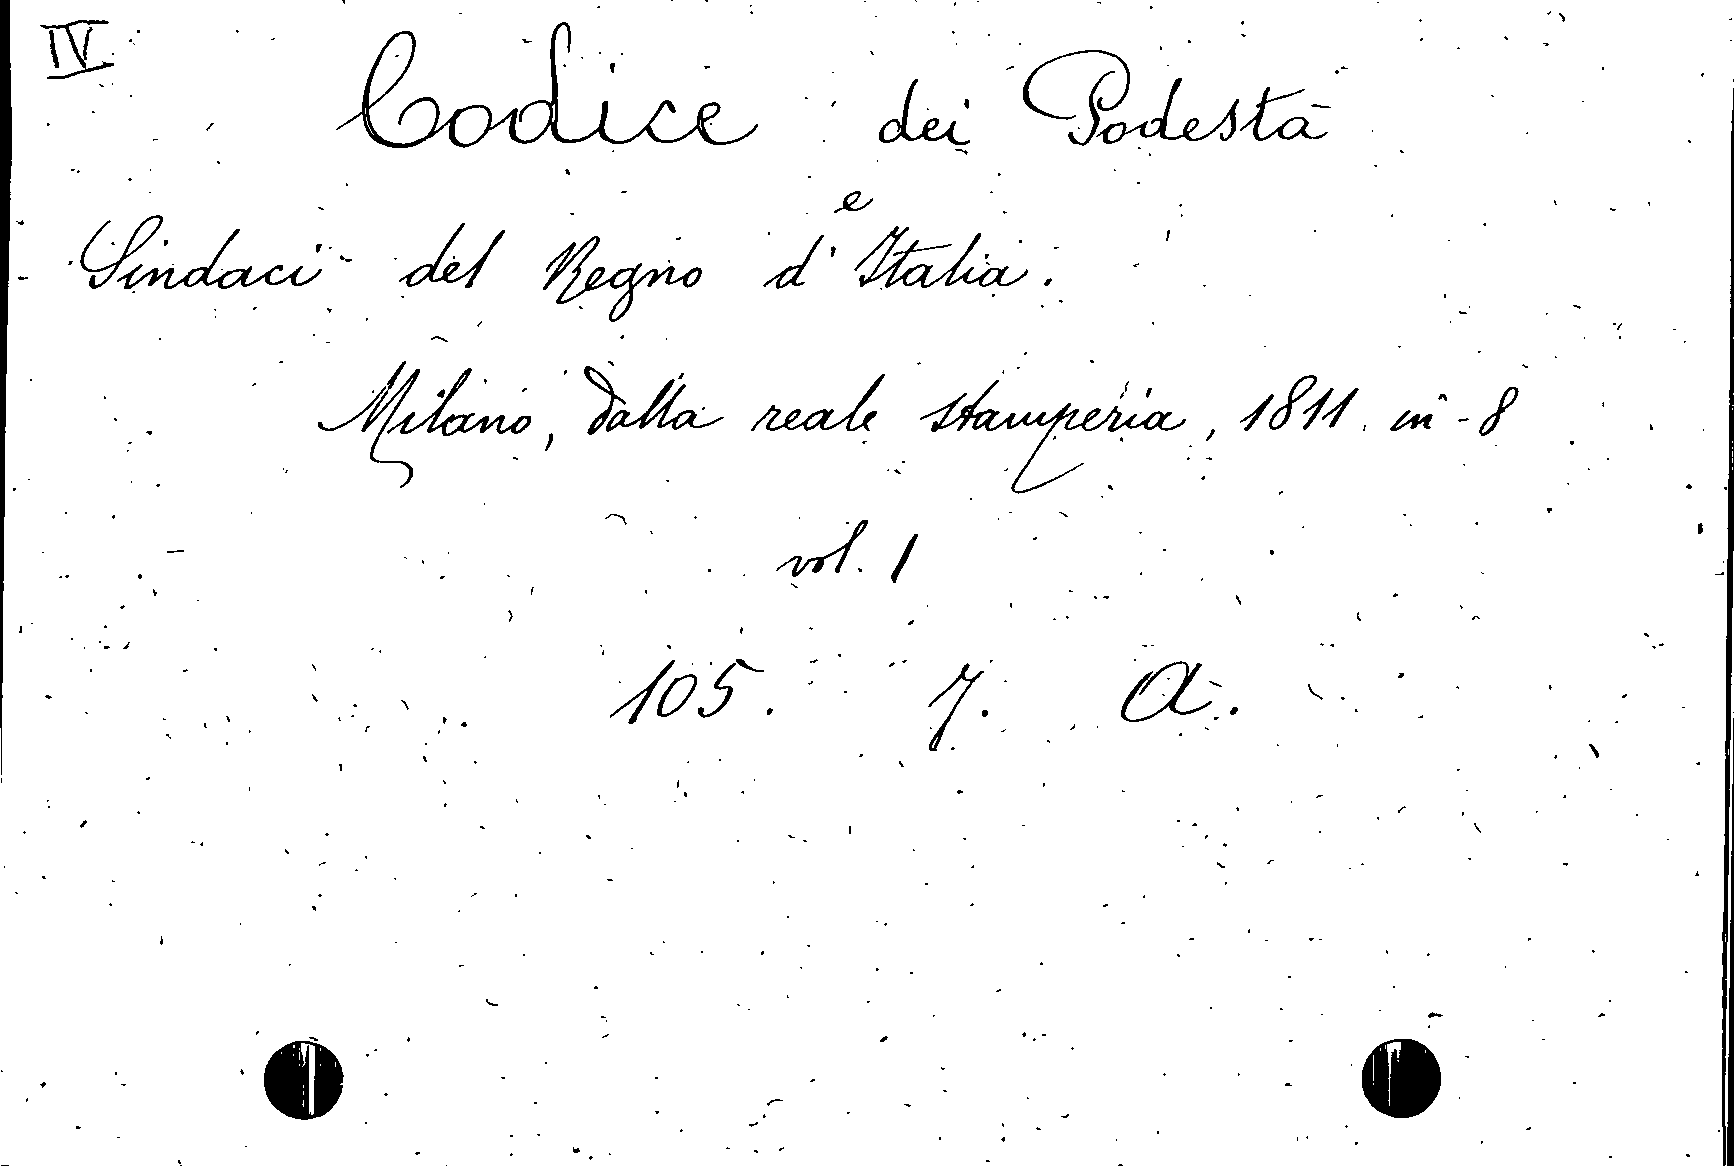 IV
Codice dei Podestà
e
Sindaci del Regno d'Italia.
Milano, dalla reale stamperia, 1811. in-8
vol. 1
105. 7. A.